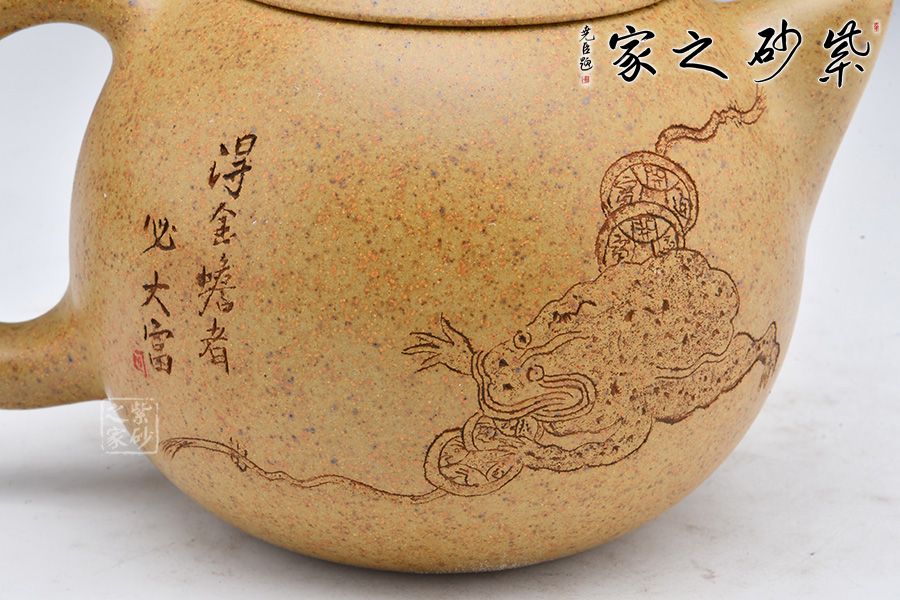 家之砂紫
尧臣题
得金蟾者
必大富
紫砂
之家